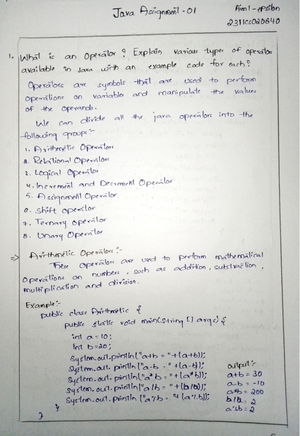 Java Assignment - 01
Aiml - epsilon
2311CC020640
1. What is an Operator? Explain various type of operator
available in Java with an example code for each?
Operators are symbols that are used to perform
operations on variables and manipulate the values
of the operands.
We can divide all the java operators into the
following groups:-
1. Arithmetic Operator
2. Relational Operator
3. Logical Operator
4. Increment and Decrement Operator
5. Assignment Operator
6. Shift operator
7. Ternary operator
8. Unary Operator
=> Arithmetic Operator:-
These operators are used to perform mathematical
operations on numbers, such as addition, substraction,
multiplication and division.
Example:-
public class Arithmetic {
public static void main(String [] args) {
int a = 10;
int b = 20;
System.out.println("a+b = "+(a+b));
System.out.println("a-b = "+(a-b));
System.out.println("a*b = "+(a*b));
System.out.println("b/a = "+(b/a));
System.out.println("a%b = "+(a%b));
}
}
output:-
a+b = 30
a-b = -10
a*b = 200
b/a = 2
a%b = 2